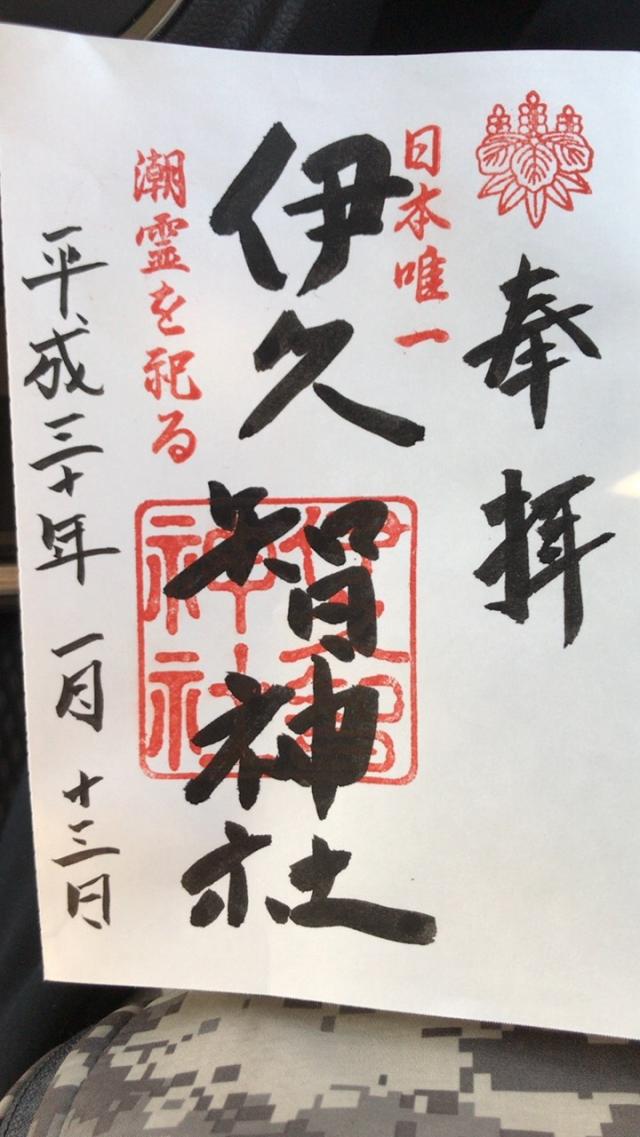 奉拝
日本唯一
伊久智神社
伊久智神社
潮霊を祀る
平成三十年 一月 十三日